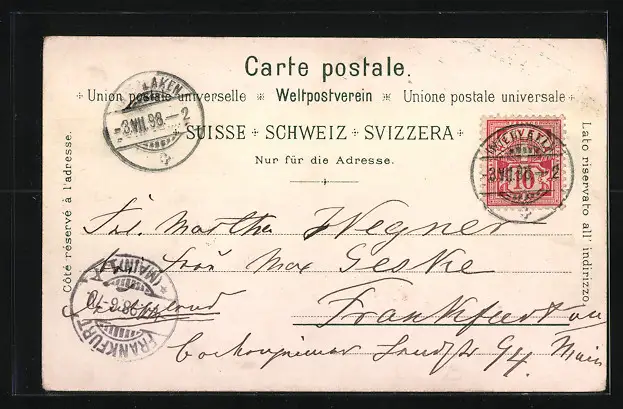 Carte postale.
Union postale universelle Weltpostverein Unione postale universale
SUISSE SCHWEIZ SVIZZERA
Nur für die Adresse.
Côté réservé à l'adresse.
Lato riservato all' indirizzo.
LAKEN
-3.VII.98.-2
INTERLAKEN
-3.VII.98.-2
10
Frl. Martha Wegner
Frau Max Geske
Frankfurt am
Landstr 94. Main
FRANKFURT
(MAIN) 1